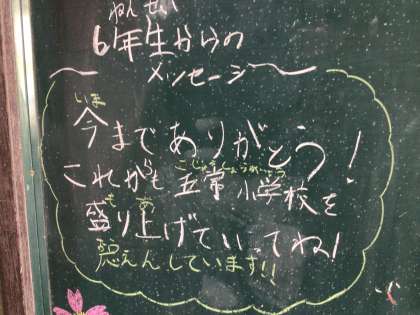 ねんせい
6年生からの
メッセージ
いま
今までありがとう!
ごじょうしょうがっこう
これからも五常小学校を
も あ
盛り上げていってね!
おう
応えんしています!!